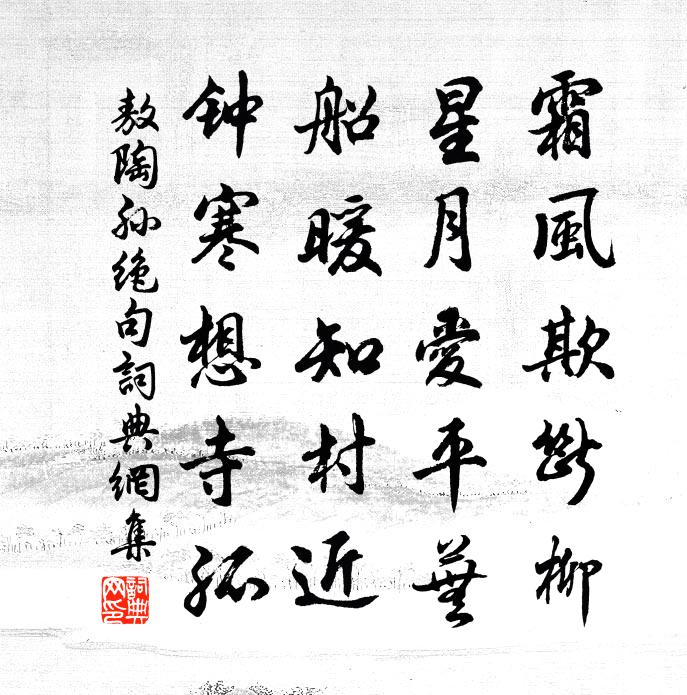 霜風欺斷柳
星月愛平蕪
船暖知村近
钟寒想寺孤
敖陶孙絶句詞典網集
詞典网印